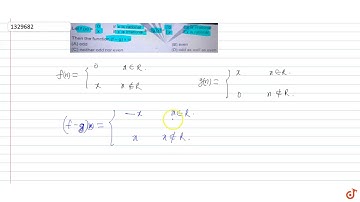 1329682
Then the function f - g is
(A) odd (B) even
(C) neither odd nor even (D) odd as well as even
f(x) = { 0 x ∈ R.
x x ∉ R.
g(x) = { x x ∈ R.
0 x ∉ R.
(f-g)(x) = { -x x ∈ R.
x x ∉ R.